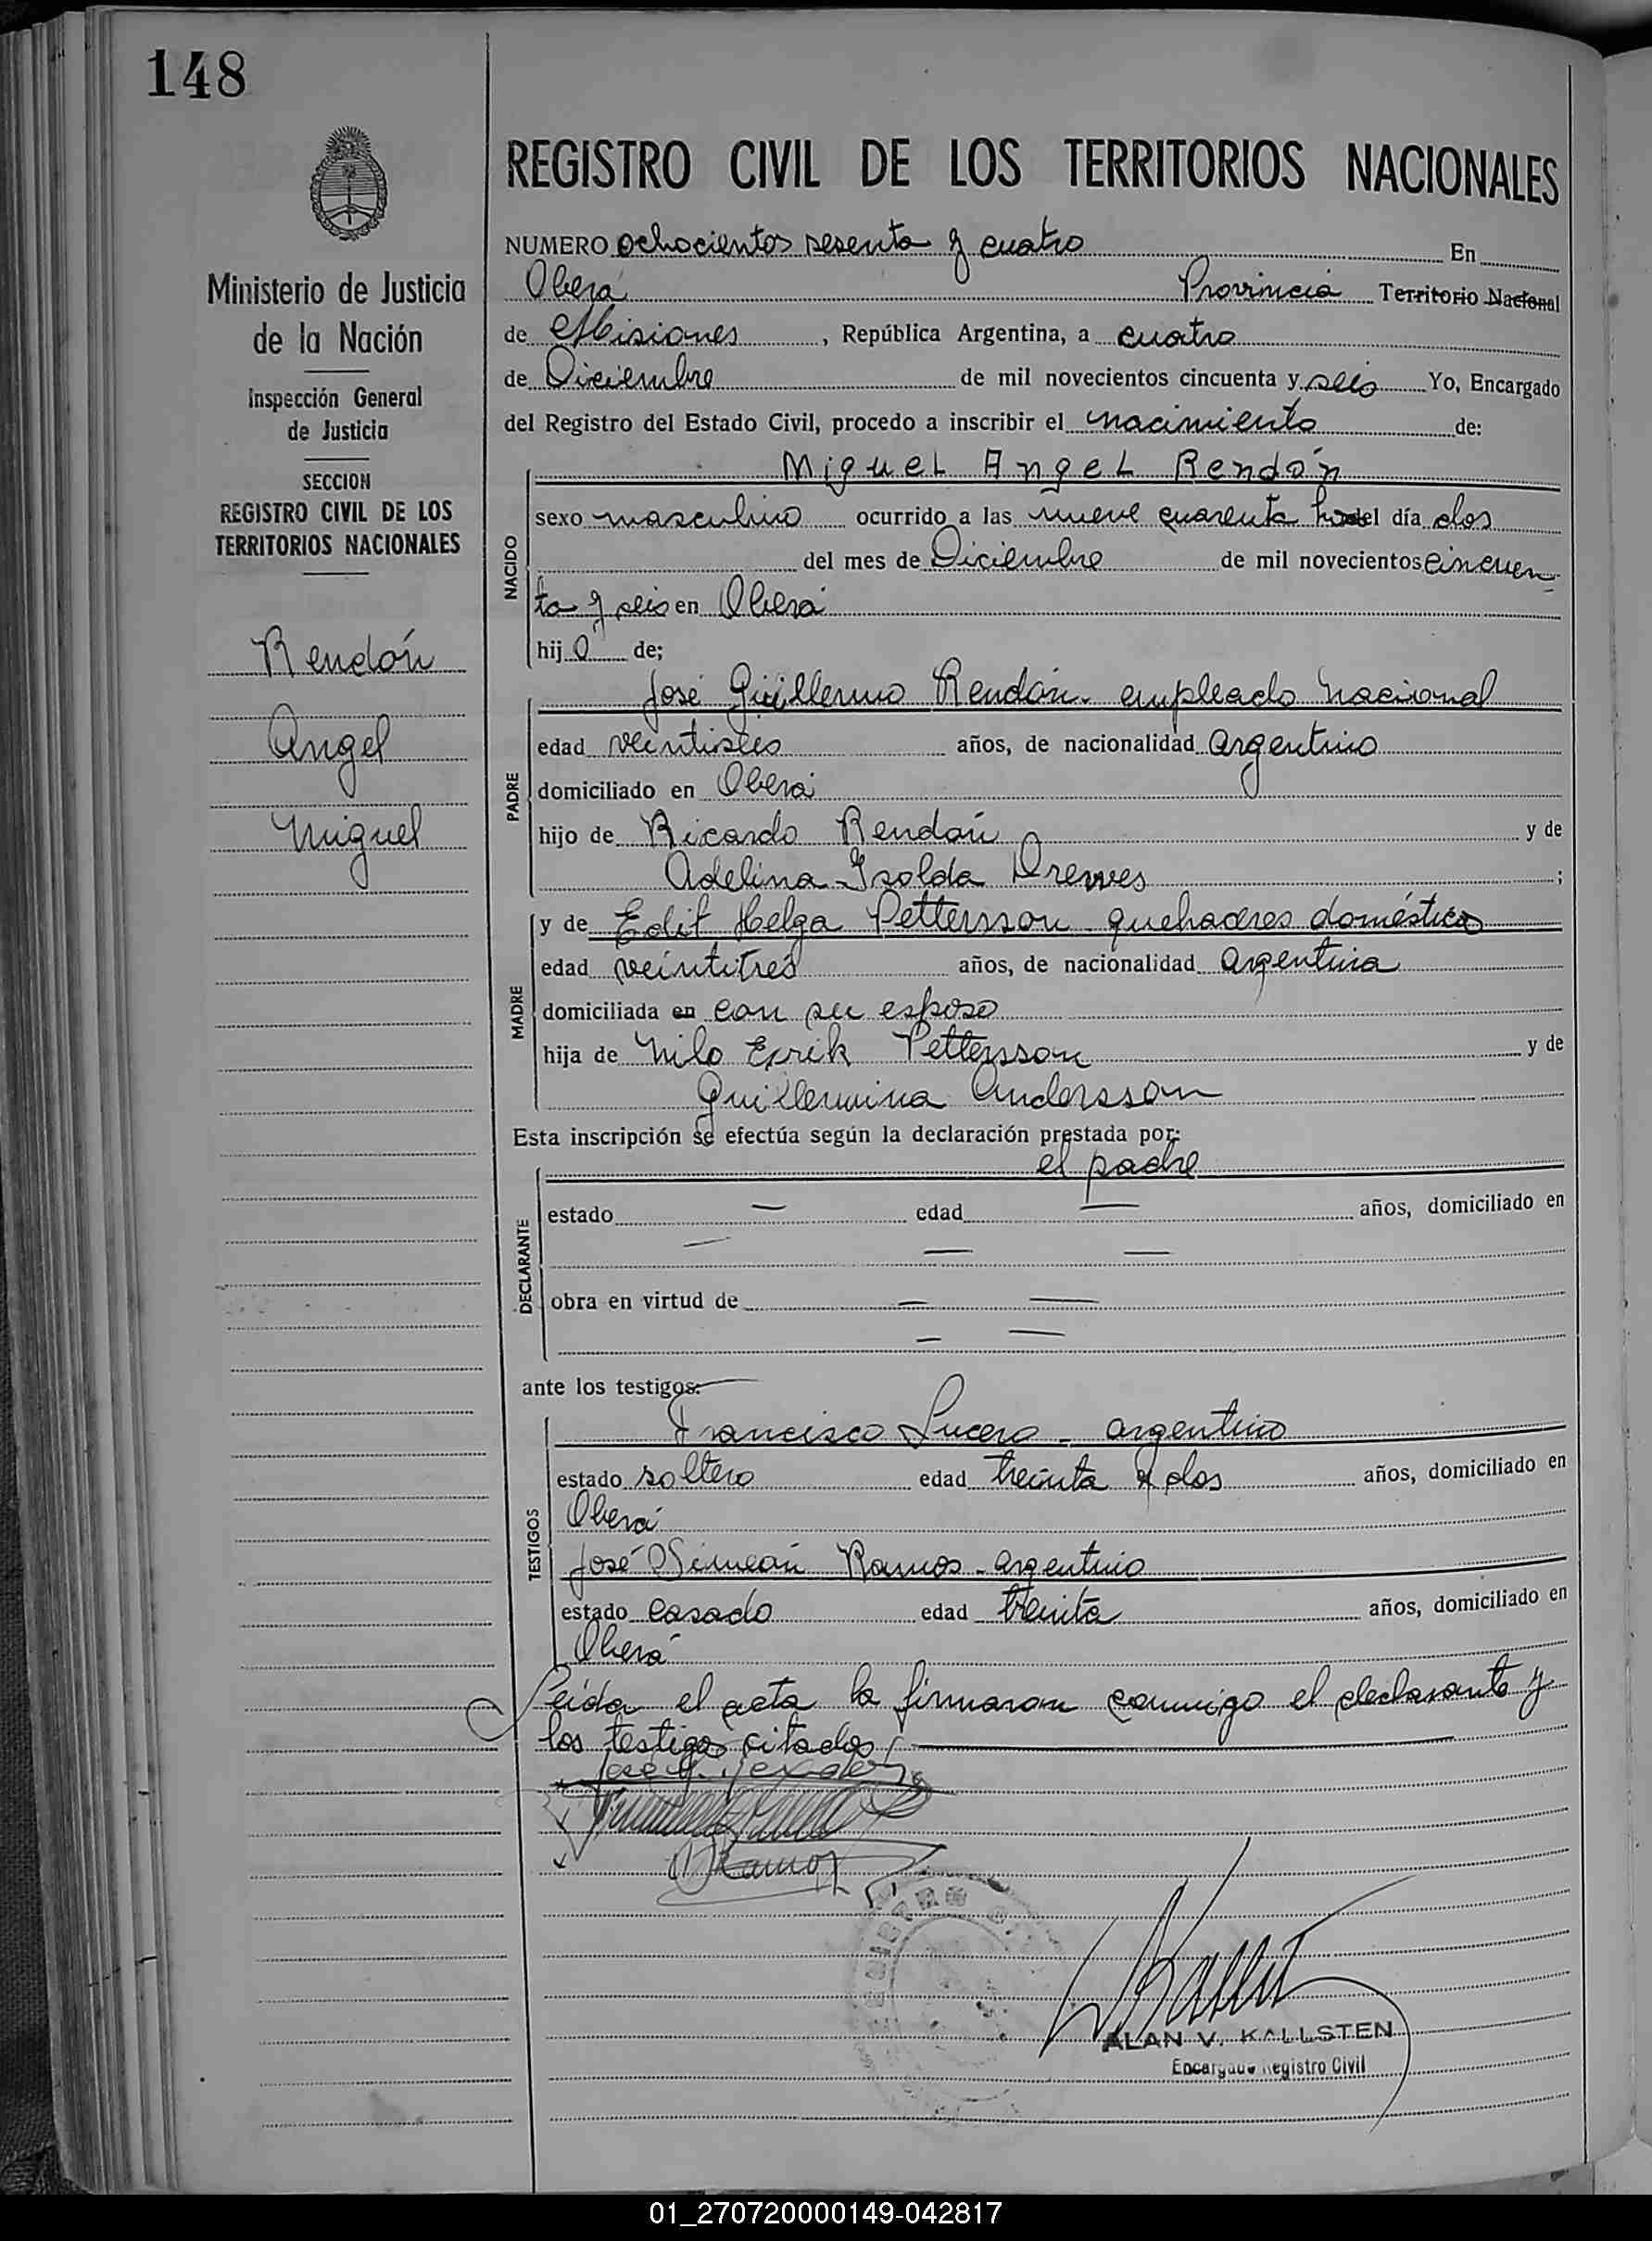 148
REGISTRO CIVIL DE LOS TERRITORIOS NACIONALES
NUMERO ochocientos sesenta y cuatro En
Oberá Provincia Territorio Nacional
de Misiones, República Argentina, a cuatro
de Diciembre de mil novecientos cincuenta y seis Yo, Encargado
del Registro del Estado Civil, procedo a inscribir el nacimiento de:
Miguel Angel Rendón
NACIDO
sexo masculino ocurrido a las nueve cuarenta del día dos
del mes de Diciembre de mil novecientos cincuen
ta y seis en Oberá
hijo de;
José Guillermo Rendón. empleado nacional
PADRE
edad veintiseis años, de nacionalidad argentino
domiciliado en Oberá
hijo de Ricardo Rendón y de
Adelina Isolda Drewes;
MADRE
y de Edit Helga Pettersson quehaceres domésticos
edad veintitres años, de nacionalidad argentina
domiciliada en con su esposo
hija de Nilo Erik Pettersson y de
Guillermina Andersson
Esta inscripción se efectúa según la declaración prestada por:
el padre
DECLARANTE
estado — edad — años, domiciliado en
— — —
obra en virtud de — —
— —
ante los testigos:
Francisco Lucero - argentino
TESTIGOS
estado soltero edad treinta y dos años, domiciliado en
Oberá
José Simeón Ramos - argentino
estado casado edad treinta años, domiciliado en
Oberá
Leída el acta la firmaron conmigo el declarante y
los testigos citados
Ramos
ALAN V. KALLSTEN
Encargado Registro Civil
Ministerio de Justicia
de la Nación
Inspección General
de Justicia
SECCION
REGISTRO CIVIL DE LOS
TERRITORIOS NACIONALES
Rendón
Angel
Miguel
01_270720000149-042817